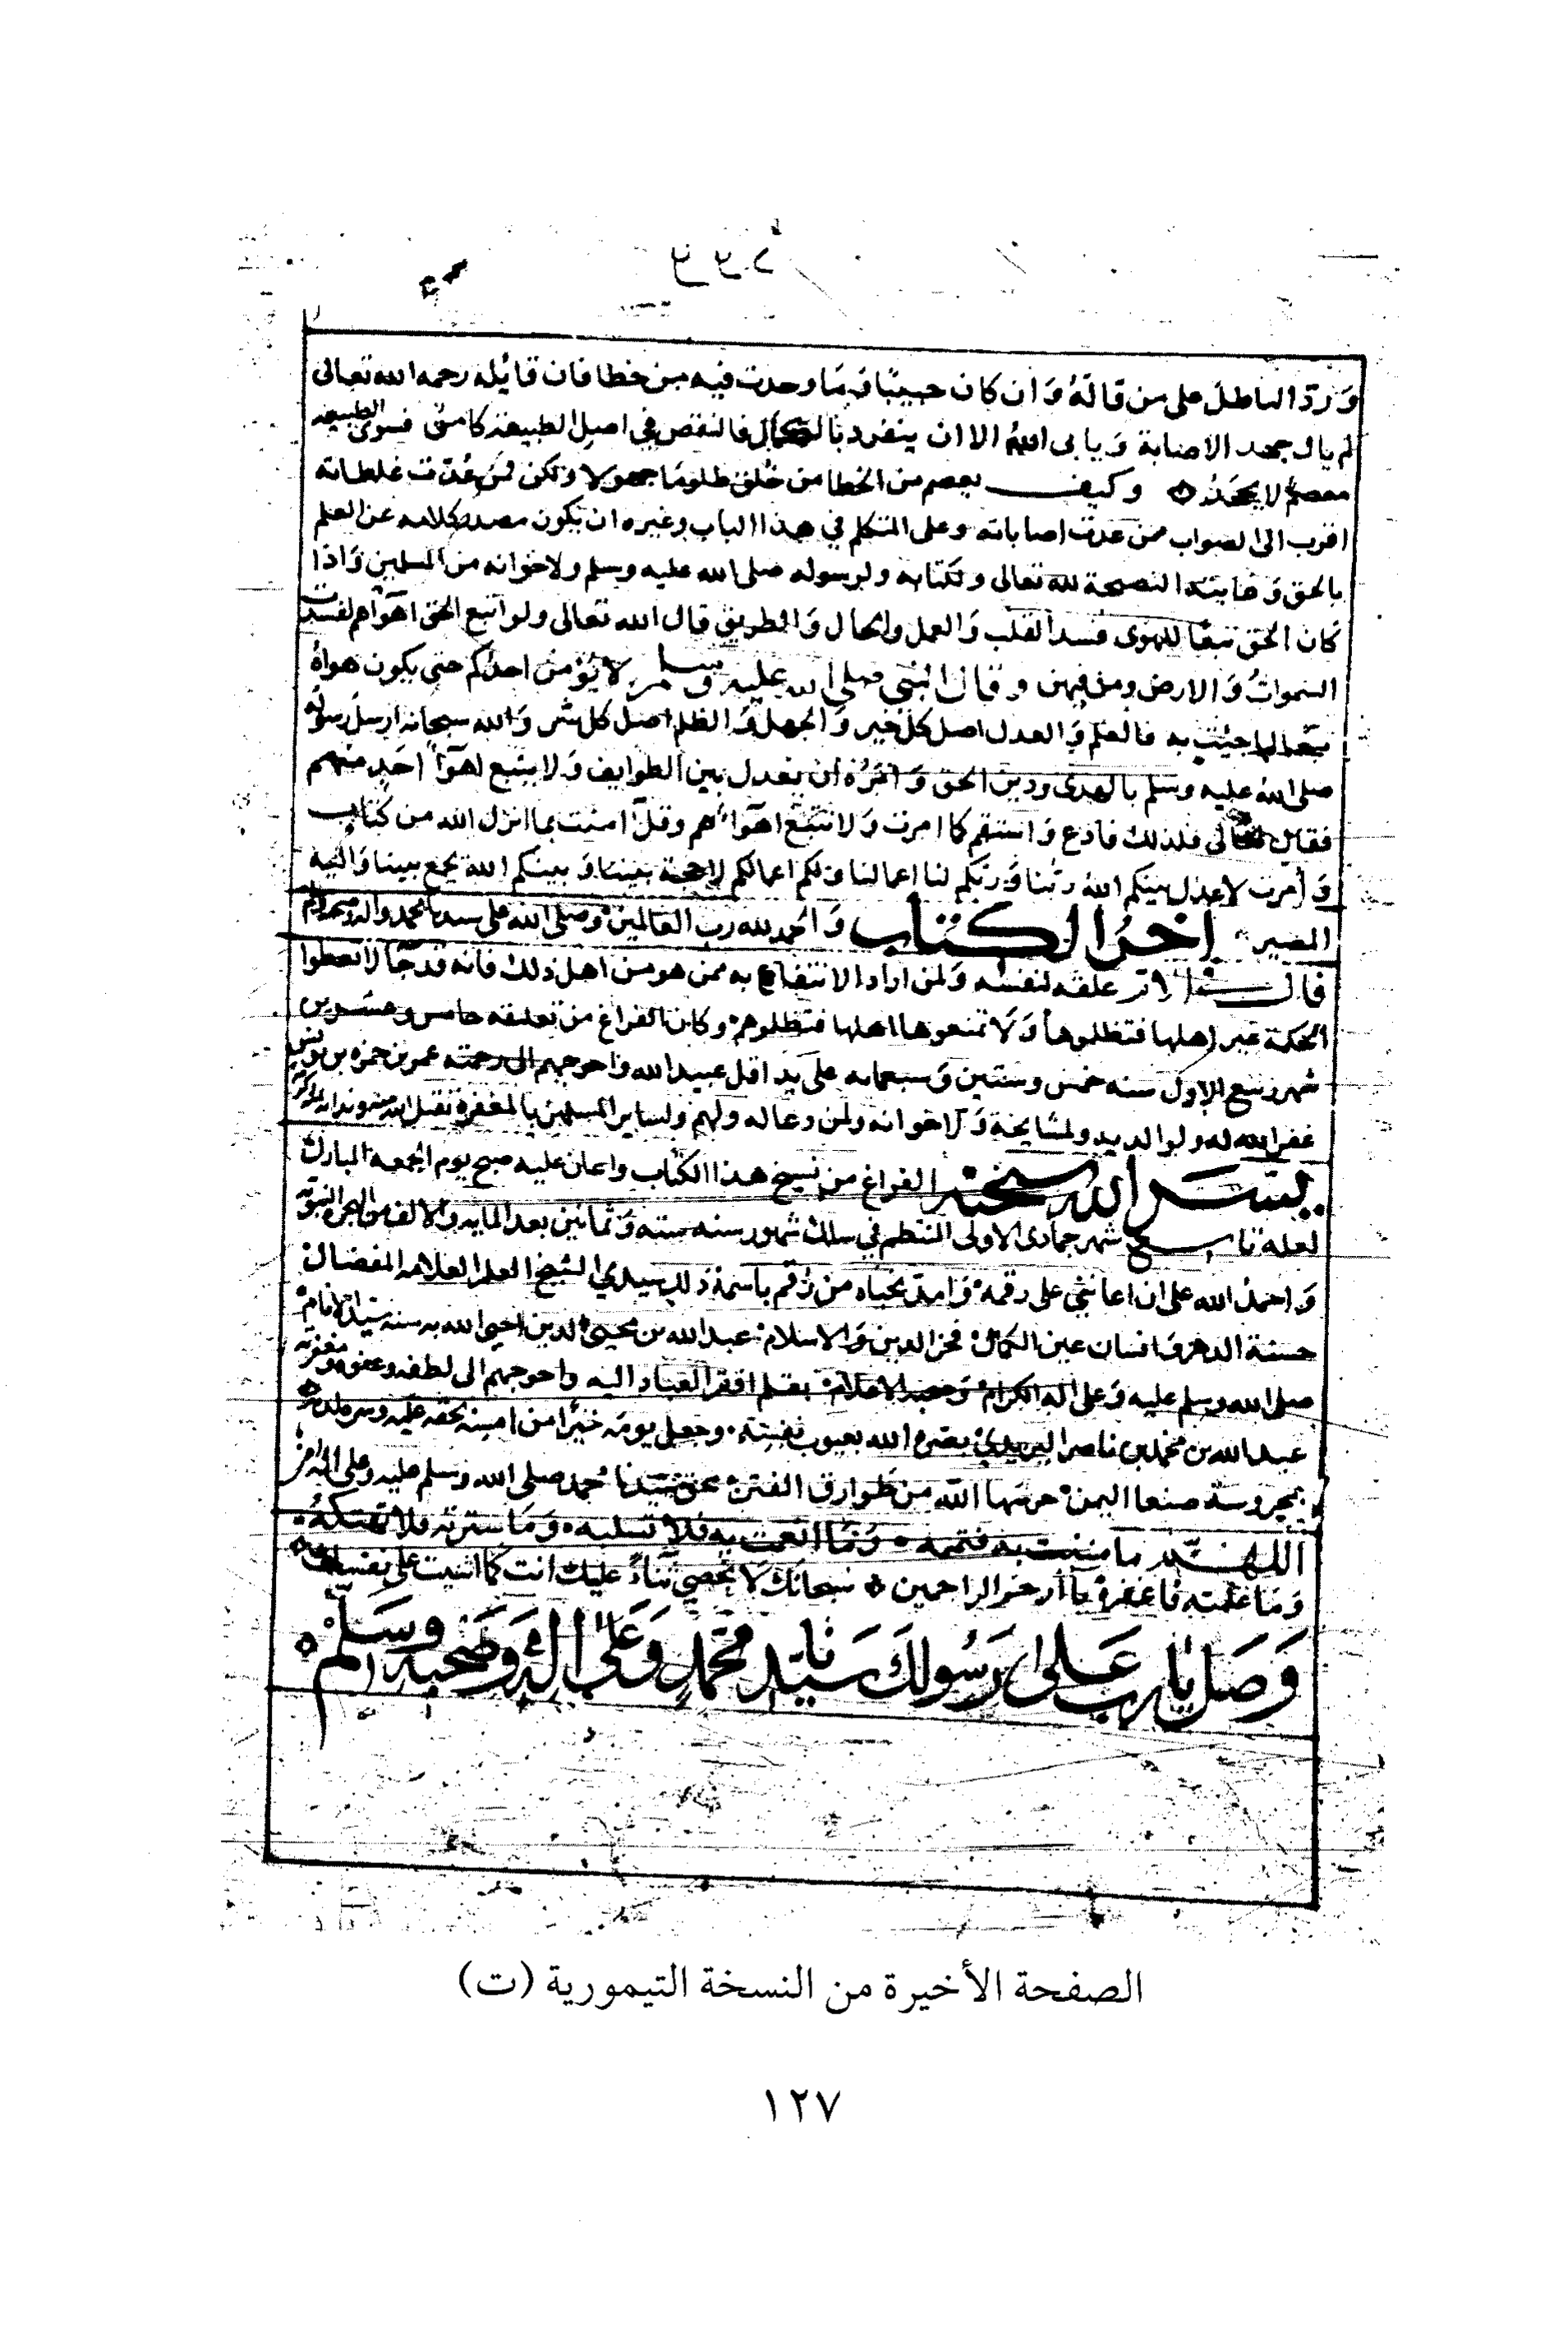 ورد الباطل على من قاله وان كان حبيبا وما وجدت فيه من خطا فان قايله رحمه الله تعالى
لم يال جهد الاصابة ويابى الله الا ان ينفرد بالكمال فالنقص في اصل الطبيعة كامن فسوى الطبيعة
لا يجحد وكيف يعصم من الخطا من خلق ظلوما جهولا ولكن لمن عدت غلطاته
اقرب الى الصواب ممن عدت اصاباته وعلى المتكلم في هذا الباب وغيره ان يكون مصدر كلامه عن العلم
بالحق وغايته النصيحة لله تعالى ولكتابه ولرسوله صلى الله عليه وسلم ولاخوانه من المسلمين واذا
كان الحق تبعا للهوى فسد القلب والعمل والحال والطريق قال الله تعالى ولو اتبع الحق اهواهم لفسدت
السموات والارض ومن فيهن وقال النبي صلى الله عليه وسلم لا يؤمن احدكم حتى يكون هواه
تبعا لما جيت به فالعلم والعدل اصل كل خير والجهل والظلم اصل كل شر والله سبحانه ارسل رسوله
صلى الله عليه وسلم بالهدى ودين الحق وامره ان يعدل بين الطوايف ولا يتبع اهوآ احد منهم
فقال تعالى فلذلك فادع واستقم كما امرت ولا تتبع اهوآئهم وقل امنت بما انزل الله من كتاب
وأمرت لاعدل بينكم الله ربنا وربكم لنا اعمالنا ولكم اعمالكم لا حجة بيننا وبينكم الله يجمع بيننا واليه
المصير اخر الكتاب والحمد لله رب العالمين وصلى الله على سيدنا محمد واله وصحبه
قال علقه لنفسه ولمن اراد الانتفاع به ممن هو من اهل ذلك فانه قد جآ لا تعطوا
الحكمة غير اهلها فتظلموها ولا تمنعوها اهلها فتظلموهم وكان الفراغ من تعليقه خامس وعشرين
شهر ربيع الاول سنه خمس وستين وسبعمايه على يد اقل عبيد الله واحوجهم الى رحمته عمر بن حمزه بن يونس
غفر الله له ولوالديه ولمشايخه ولاخوانه ولمن دعا له ولهم ولساير المسلمين بالمغفرة تقبل الله منه
يسر الله سبحنه الفراغ من نسخ هذا الكتاب واعان عليه صبح يوم الجمعة المبارك
لعله تاسع شهر جمادى الاولى المنتظم في سلك شهور سنه ستة وثمانين بعد المايه والالف من الهجره النبويه
واحمد الله على ان اعانني على رقمه من رقم باسمه ذلك سيدي الشيخ العلم العلامه المفضال
حسنة الدهر وانسان عين الكمال فخر الدين والاسلام عبد الله بن محيي الدين احيى الله به سنه سيد الانام
صلى الله وسلم عليه وعلى اله الكرام وصحبه الاعلام بقلم افقر العباد اليه واحوجهم الى لطفه وعفوه ومغفرته
عبد الله بن محمد بن ناصر اليريدي بصره الله بعيوب نفسه وجعل يومه خيرا من امسه
بمحروسة صنعا اليمن حرسها الله من طوارق الفتن بحق سيدنا محمد صلى الله وسلم عليه وعلى اله
اللهم ما مننت به فتممه وما انعمت به فلا تسلبه وما سترته فلا تهتكه
وما علمته فاغفره يا أرحم الراحمين سبحانك لا نحصي ثناء عليك انت كما اثنيت على نفسك
وصل يا رب على رسولك سيدنا محمد وعلى اله وصحبه وسلم
الصفحة الأخيرة من النسخة التيمورية (ت)
١٢٧